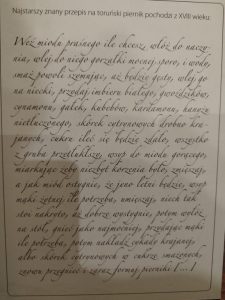 Najstarszy znany przepis na toruński piernik pochodzi z XVIII wieku:
Weź miodu praśnego ile chcesz, włóż do naczy-
nia, wlej do niego gorzałki mocnej sporo, i wody,
smaż powoli szumując, aż będzie gęsty, wlej go
na niecki, przydaj imbieru białego, gwoździków,
cynamonu, gałek, kubebów, kardamonu, hanyżu
nietłuczonego, skórek cytrynowych drobno kra-
janych, cukru ileć się będzie zdało, wszystko
z gruba przetłukłszy, wsyp do miodu gorącego,
miarkując żeby niezbyt korzenia było, zmieszaj,
a jak miód ostygnie, że jeno letni będzie, wsyp
mąki żytnej ile potrzeba, umieszaj, niech tak
stoi nakryto, aż dobrze wystygnie, potym wyłóż
na stół, gnieć jako najmocniej, przydając mąki
ile potrzeba, potym nakładź cykady krajanej,
albo skórek cytrynowych w cukrze smażonych,
znowu przegnieć i zaraz formuj pierniki [...]